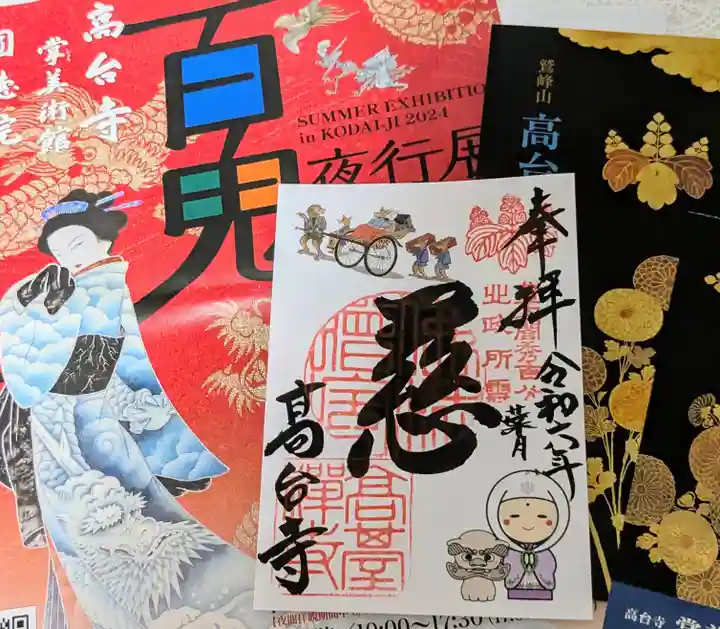 高台寺
掌美術館
圓徳院
百鬼
夜行展
SUMMER EXHIBITION
in KODAI-JI 2024
鷲峰山
高台
奉拝
令和六年
葉月
慈
高台寺
北政所
高臺
禅
10:00〜17:30
高台寺